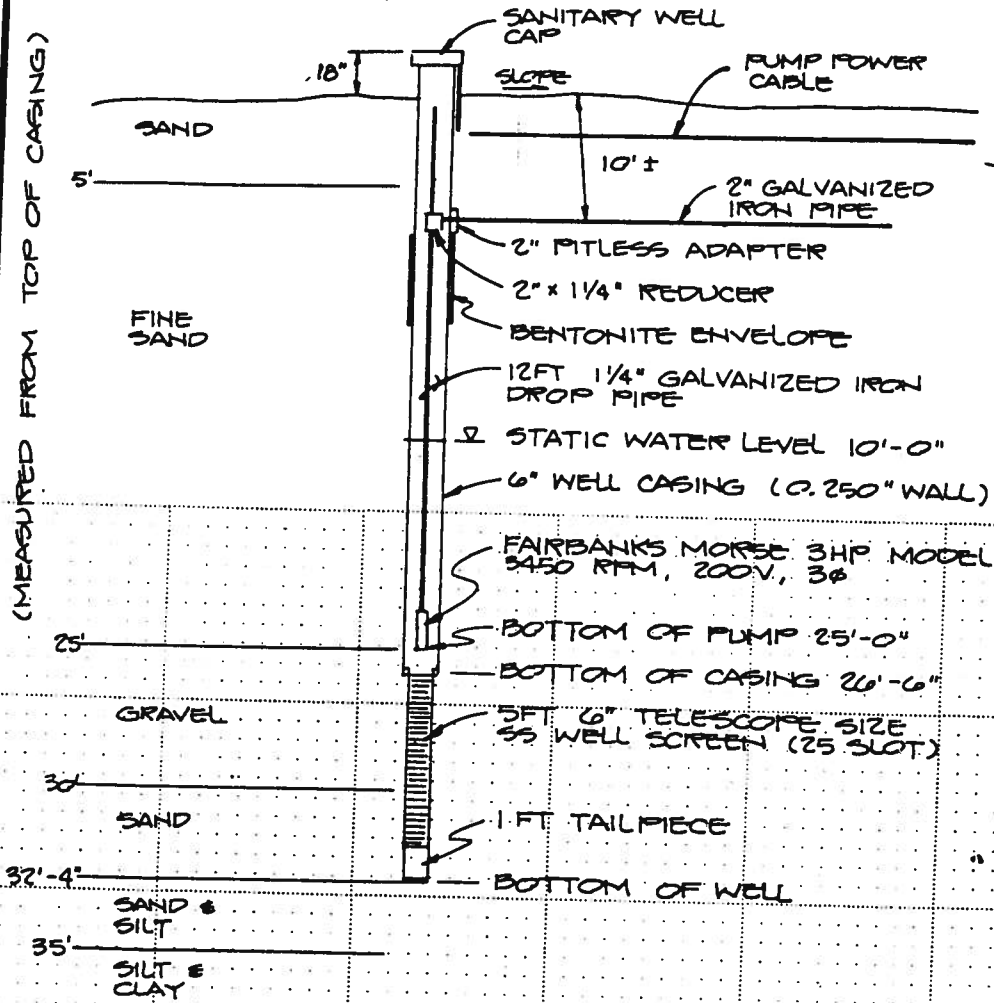 SANITARY WELL
CAP
18"
SLOPE
PUMP POWER
CABLE
(MEASURED FROM TOP OF CASING)
SAND
5'
10' ±
2" GALVANIZED
IRON PIPE
2" PITLESS ADAPTER
2" x 1 1/4" REDUCER
FINE
SAND
BENTONITE ENVELOPE
12FT 1 1/4" GALVANIZED IRON
DROP PIPE
STATIC WATER LEVEL 10'-0"
6" WELL CASING (0.250" WALL)
FAIRBANKS MORSE 3HP MODEL
3450 RPM, 200V., 3ø
25'
BOTTOM OF PUMP 25'-0"
BOTTOM OF CASING 26'-6"
GRAVEL
5FT 6" TELESCOPE SIZE
SS WELL SCREEN (25 SLOT)
30'
SAND
1 FT TAILPIECE
32'-4"
BOTTOM OF WELL
SAND &
SILT
35'
SILT &
CLAY